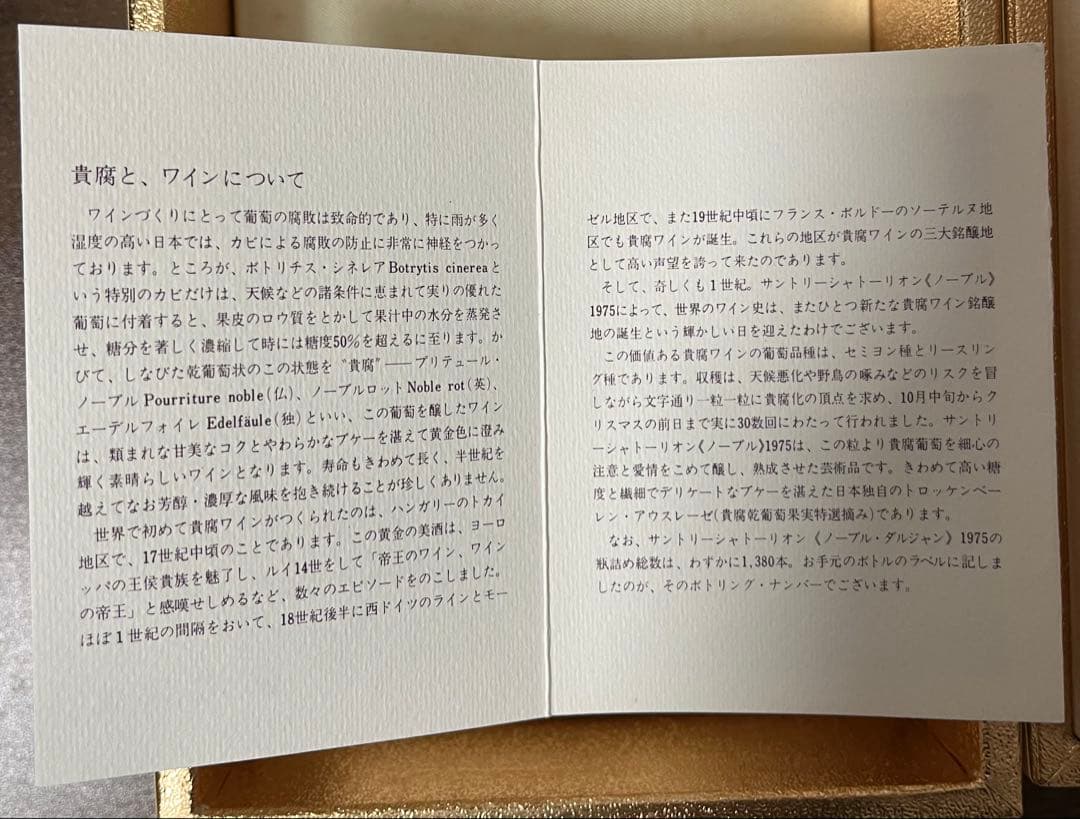 貴腐と、ワインについて
ワインづくりにとって葡萄の腐敗は致命的であり、特に雨が多く
湿度の高い日本では、カビによる腐敗の防止に非常に神経をつかっ
ております。ところが、ボトリチス・シネレアBotrytis cinereaと
いう特別のカビだけは、天候などの諸条件に恵まれて実りの優れた
葡萄に付着すると、果皮のロウ質をとかして果汁中の水分を蒸発さ
せ、糖分を著しく濃縮して時には糖度50%を超えるに至ります。か
びて、しなびた乾葡萄状のこの状態を〝貴腐〟——プリテュール・
ノーブル Pourriture noble(仏)、ノーブルロット Noble rot(英)、
エーデルフォイレ Edelfäule(独)といい、この葡萄を醸したワイン
は、類まれな甘美なコクとやわらかなブケーを湛えて黄金色に澄み
輝く素晴らしいワインとなります。寿命もきわめて長く、半世紀を
越えてなお芳醇・濃厚な風味を抱き続けることが珍しくありません。
世界で初めて貴腐ワインがつくられたのは、ハンガリーのトカイ
地区で、17世紀中頃のことであります。この黄金の美酒は、ヨーロ
ッパの王侯貴族を魅了し、ルイ14世をして「帝王のワイン、ワイン
の帝王」と感嘆せしめるなど、数々のエピソードをのこしました。
ほぼ1世紀の間隔をおいて、18世紀後半に西ドイツのラインとモー
ゼル地区で、また19世紀中頃にフランス・ボルドーのソーテルヌ地
区でも貴腐ワインが誕生。これらの地区が貴腐ワインの三大銘醸地
として高い声望を誇って来たのであります。
そして、奇しくも1世紀。サントリーシャトーリオン《ノーブル》
1975によって、世界のワイン史は、またひとつ新たな貴腐ワイン銘醸
地の誕生という輝かしい日を迎えたわけでございます。
この価値ある貴腐ワインの葡萄品種は、セミヨン種とリースリン
グ種であります。収穫は、天候悪化や野鳥の啄みなどのリスクを冒
しながら文字通り一粒一粒に貴腐化の頂点を求め、10月中旬からク
リスマスの前日まで実に30数回にわたって行われました。サントリ
ーシャトーリオン《ノーブル》1975は、この粒より貴腐葡萄を細心の
注意と愛情をこめて醸し、熟成させた芸術品です。きわめて高い糖
度と繊細でデリケートなブケーを湛えた日本独自のトロッケンベー
レン・アウスレーゼ(貴腐乾葡萄果実特選摘み)であります。
なお、サントリーシャトーリオン《ノーブル・ダルジャン》1975の
瓶詰め総数は、わずかに1,380本。お手元のボトルのラベルに記しま
したのが、そのボトリング・ナンバーでございます。